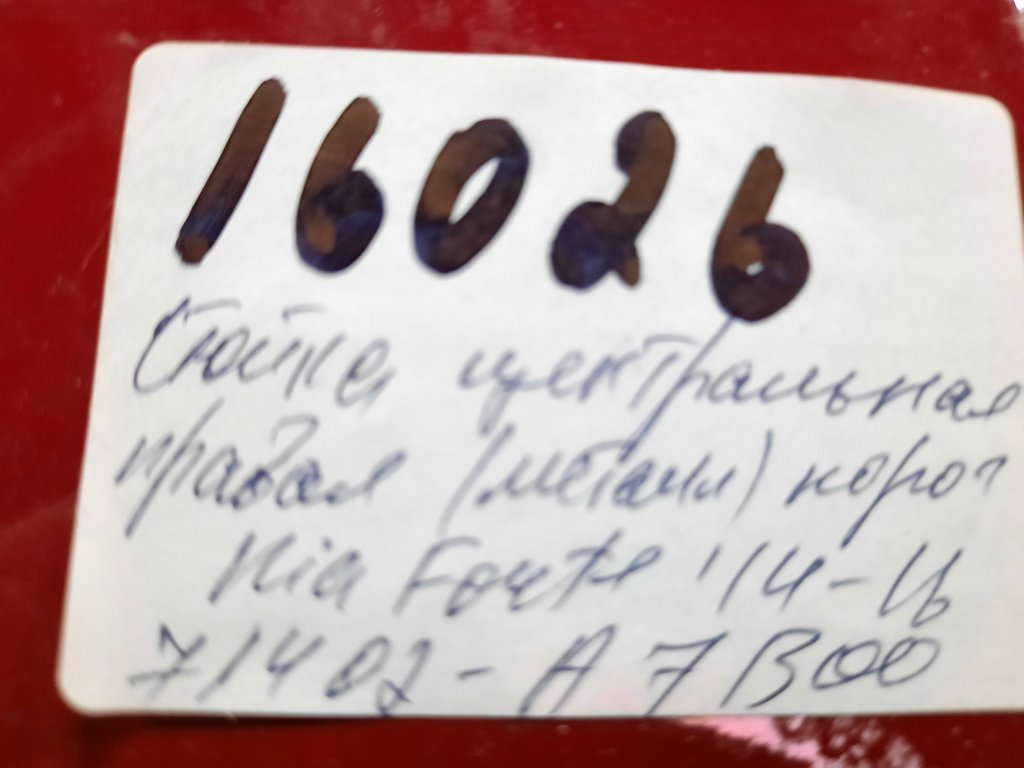 16026
Стойка центральная
правая (металл) корот
Kia Forte '14-16
71402-A7B00